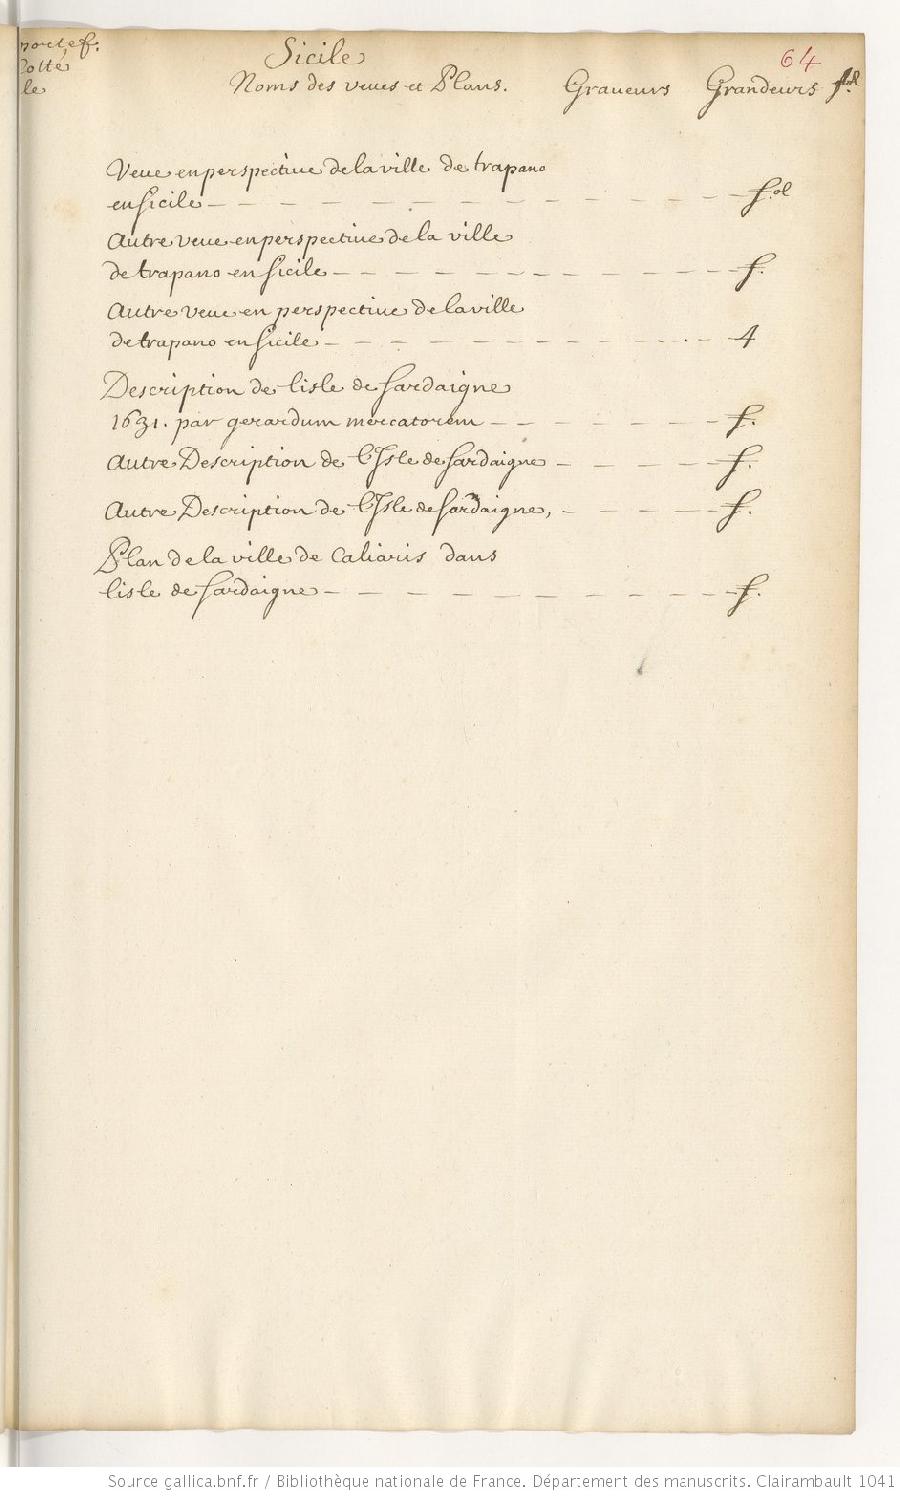 portef.
Cotté
le
64
Sicile
Noms des veues et Plans. Graveurs Grandeurs f.ol
Veue en perspective de la ville de trapano
en sicile - - - - - - - - - - - - f.ol
Autre veue en perspective de la ville
de trapano en sicile - - - - - - - - - - f.
Autre veue en perspective de la ville
de trapano en sicile - - - - - - - - - - 4
Description de lisle de sardaigne
1631. par gerardum mercatorem - - - - - - f.
Autre Description de l'Isle de sardaigne - - - - - f.
Autre Description de l'Isle de sardaigne, - - - - - f.
Plan de la ville de Caliaris dans
lisle de sardaigne - - - - - - - - - - f.
Source gallica.bnf.fr / Bibliothèque nationale de France. Département des manuscrits. Clairambault 1041